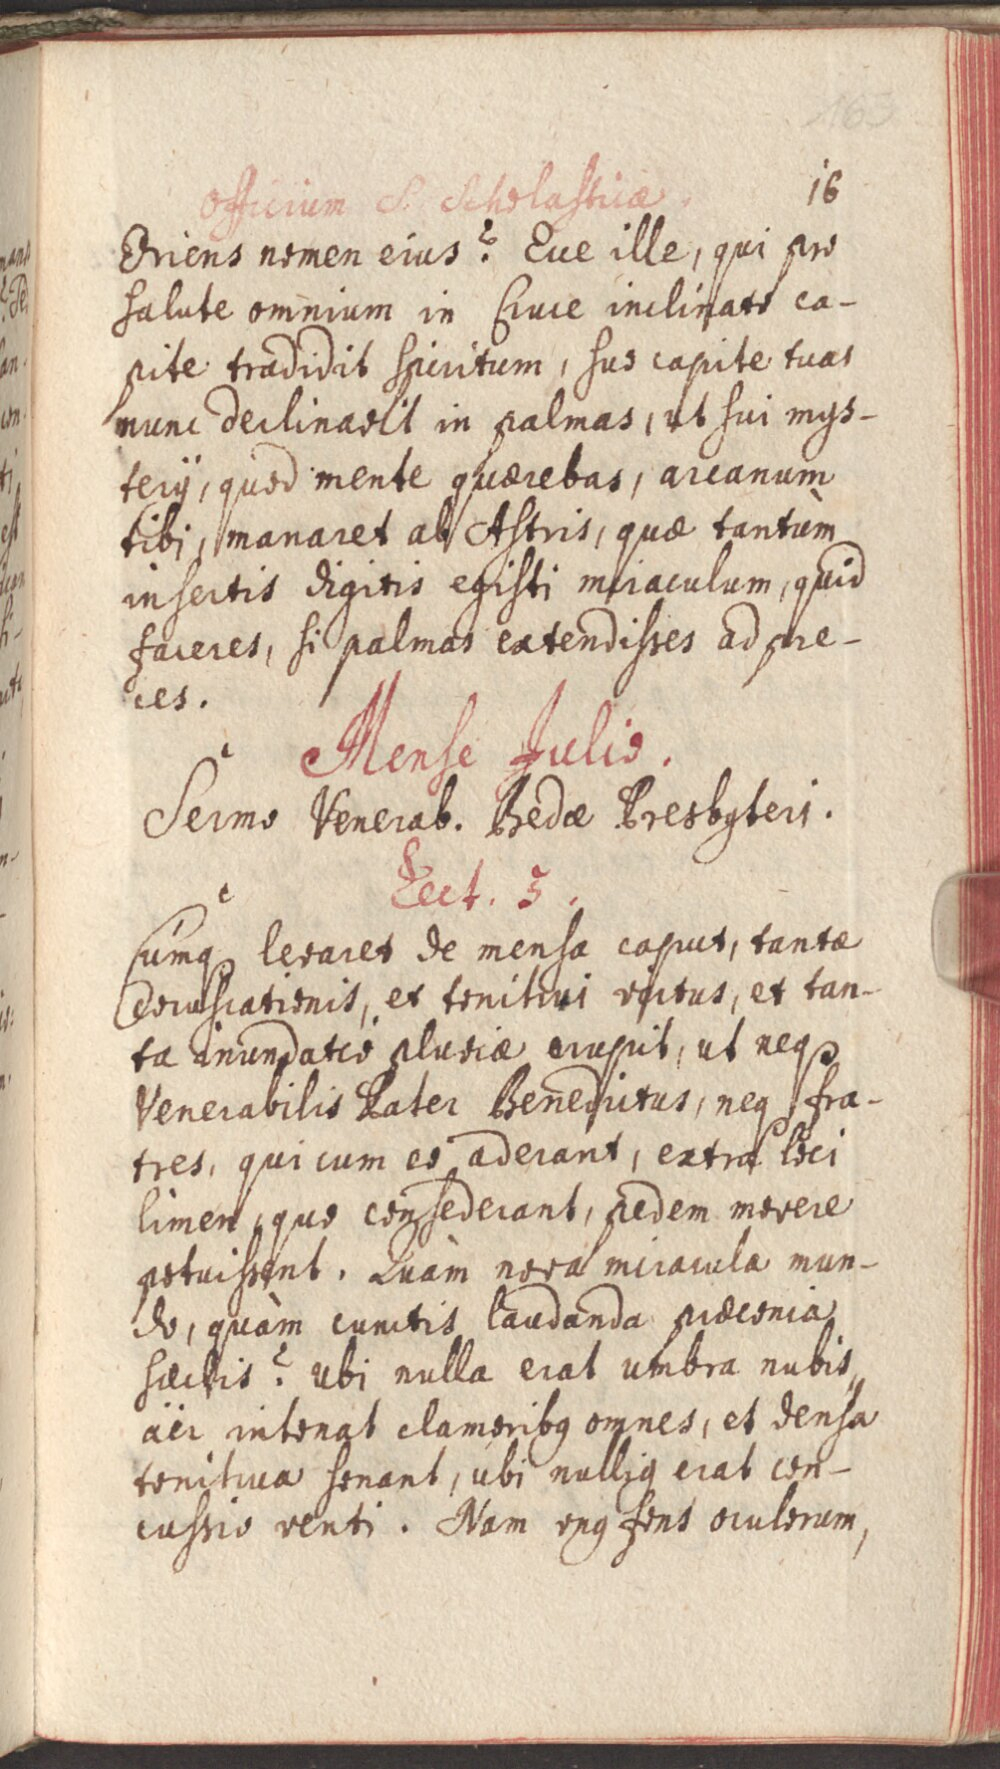 163
Officium S. Scholasticæ. 16
Oriens nomen eius? Ecce ille, qui pro
salute omnium in Cruce inclinato ca-
pite tradidit spiritum, suo capite tuas
nunc declinavit in palmas, ut sui mys-
terÿ, quod mente quærebas, arcanum
tibi, manaret ab Astris, quæ tantùm
insertis digitis egisti miraculum, quid
faceres, si palmas extendisses ad pre-
ces.
Mense Julio.
Sermo Venerab. Bedæ Presbyteri.
Lect. 5.
Cumq levaret de mensa caput, tantæ
Coruscationis, et tonitrui virtus, et tan-
ta inundatio pluviæ erupit, ut neq
Venerabilis Pater Benedictus, neq fra-
tres, qui cum eo aderant, extra loci
limen, quo consederant, pedem movere
potuissent. Quàm nova miracula mun-
do, quàm cunctis laudanda præconia
sæclis? Ubi nulla erat umbra nubis,
aër intonat clamoribq omnes, et densa
tonitrua sonant, ubi nulliq erat con-
cussio venti. Nam unq fons oculorum,